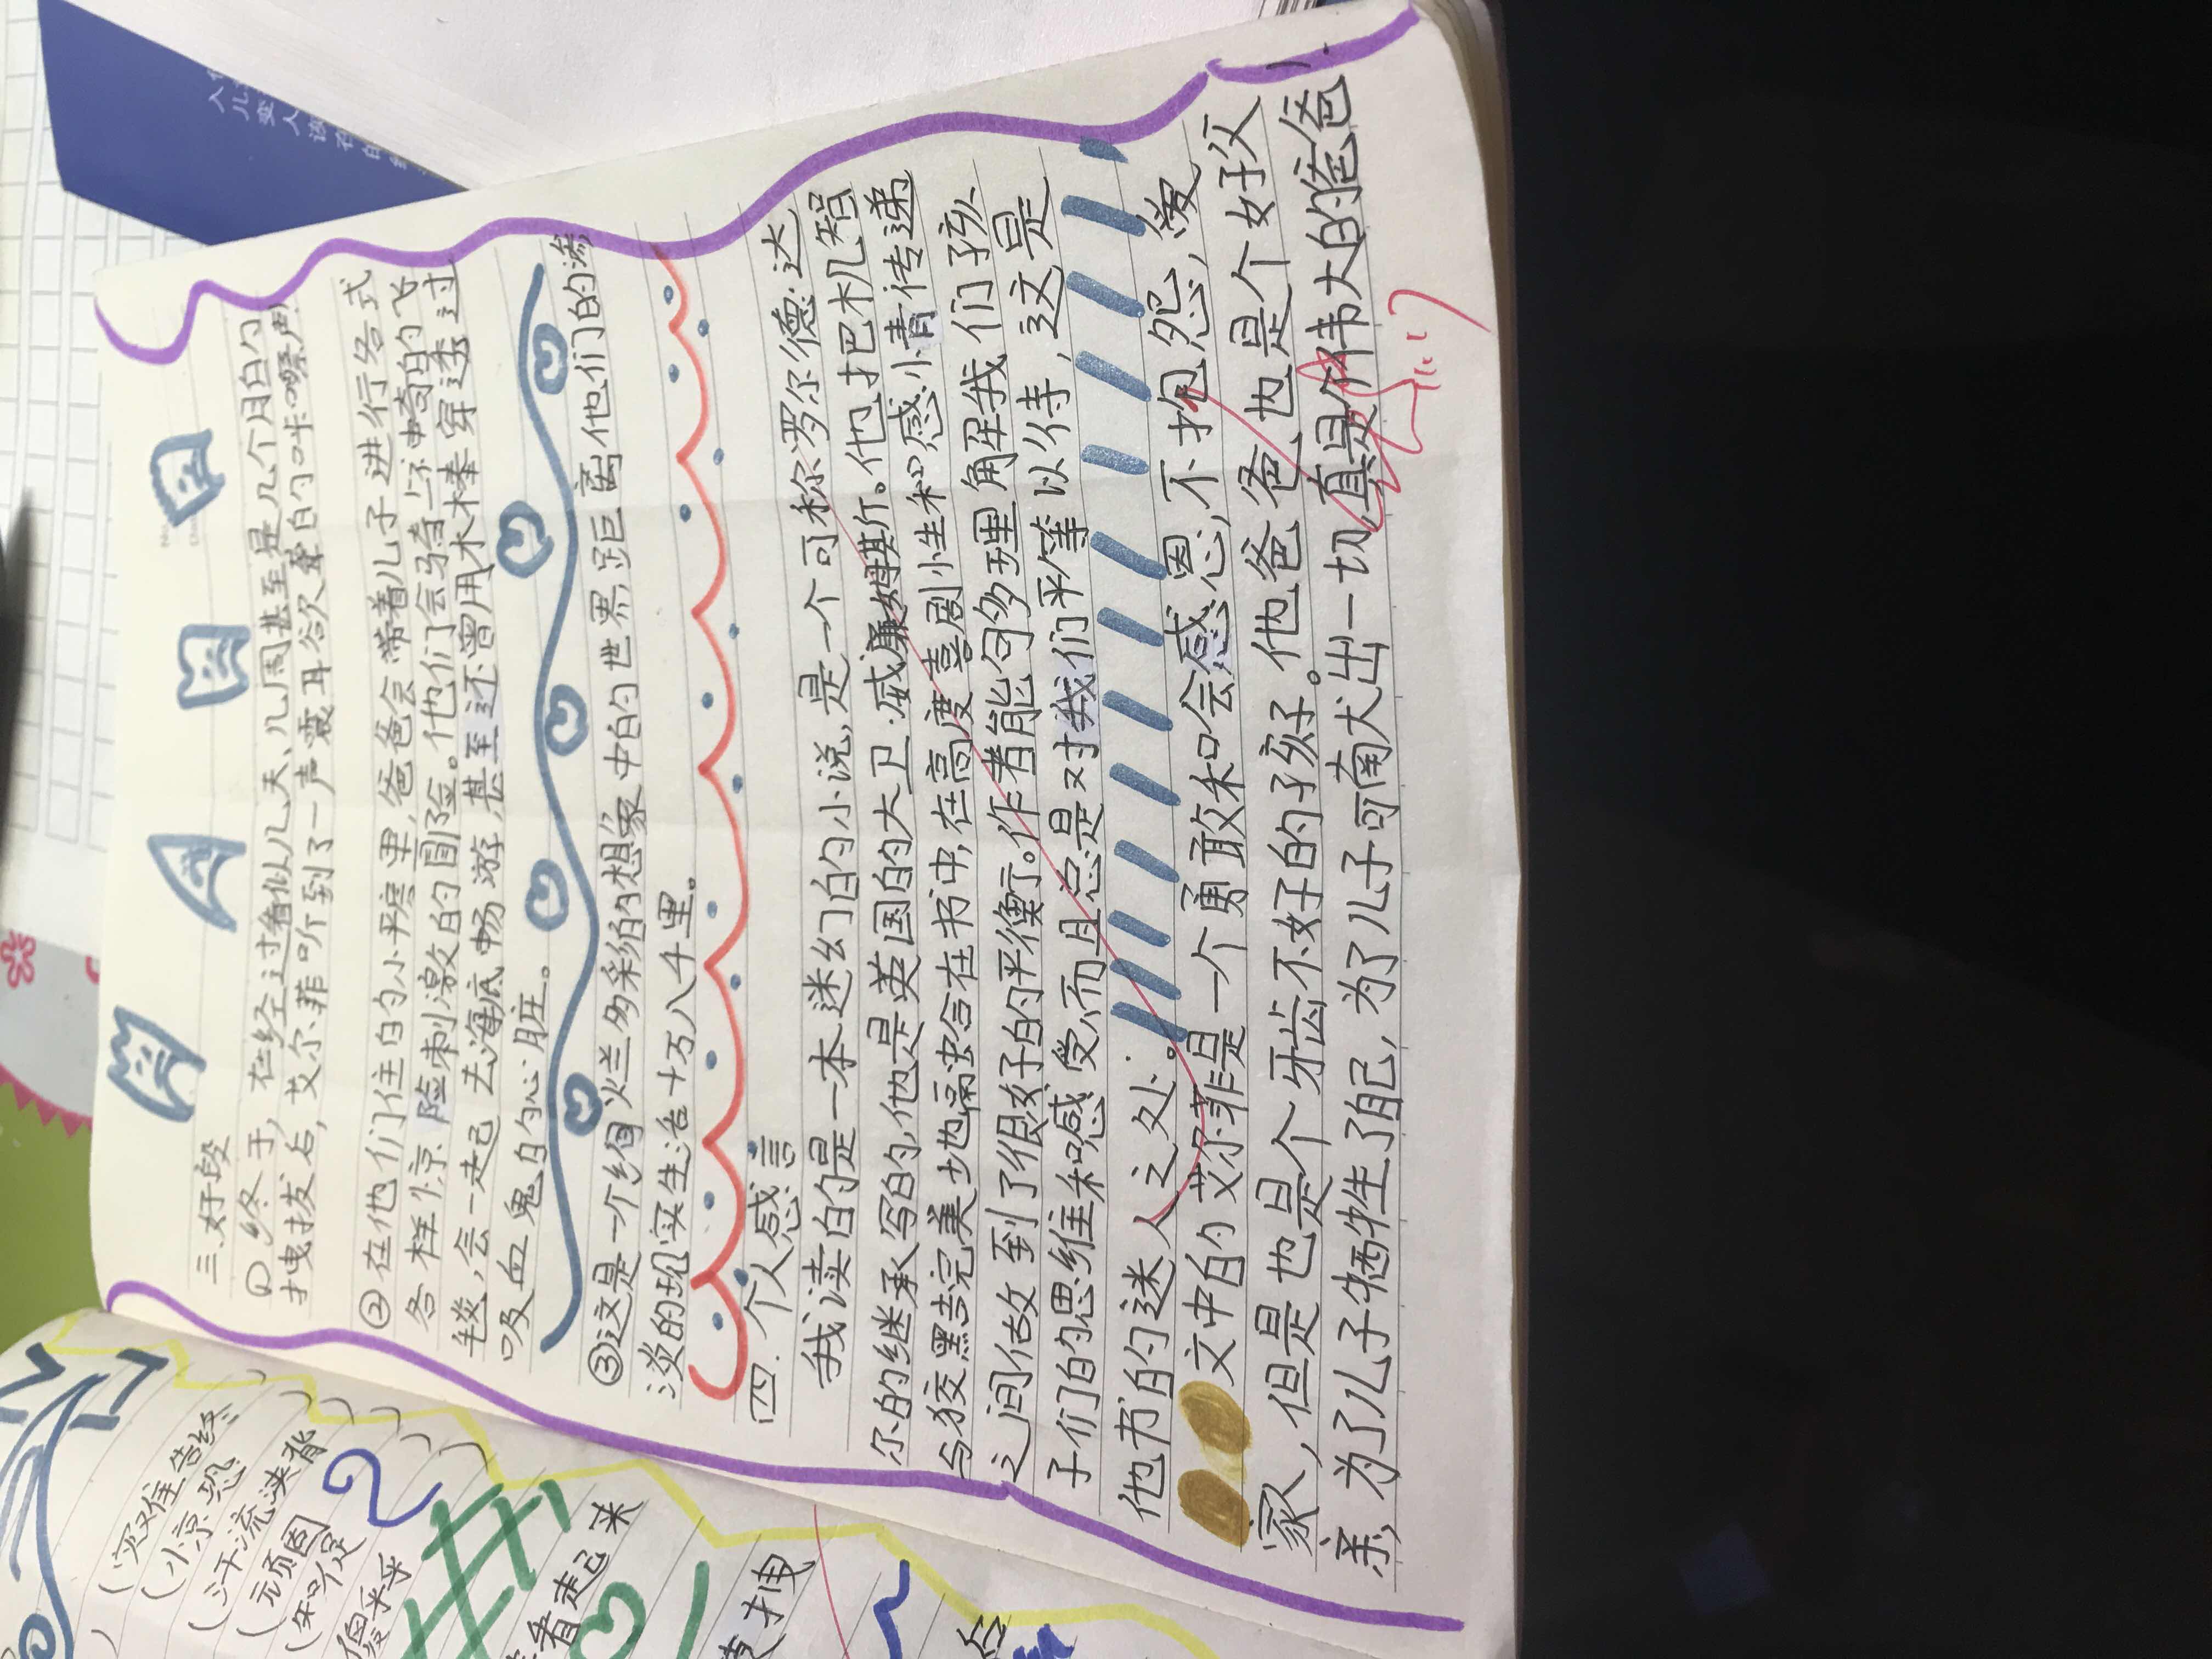 三.好段
①终于,在经过看似几天、几周甚至是几个月的勺
拽拔后,艾尔菲听到了一声震耳欲聋的咔嚓声
②在他们住的小寒里,爸爸会带着儿子进行各式
各样惊险刺激的冒险。他们会骑上神奇的飞
毯,会一起去海底畅游,甚至还曾用木棒穿透过
吸血鬼的心脏。
③这是一个绚烂多彩的想象中的世界,距离他们的惨
淡的现实生活十万八千里。
四.个人感言
我读的是一本迷幻的小说,是一个可称罗尔德·达
尔的继承人写的,他是英国的大卫·威廉姆斯。他把机智
与狡黠完美地融合在书中,在高度喜剧性和感情传递
之间做到了很好的平衡。作者能够理解我们孩
子们的思维和感受,而且总是对我们平等以待,这是
他书的迷人之处。
文中的艾尔菲是一个勇敢和会感恩,不抱怨,爱
家人,但是也是个牙齿不好的孩子。他爸爸也是个好父
亲,为了儿子牺牲了自己,为了儿子可献出一切,真是个伟大的爸爸
(灾难性告终
(惊恐
(汗流浃背
(顽固
(知足
傻乎乎
看起来
拽